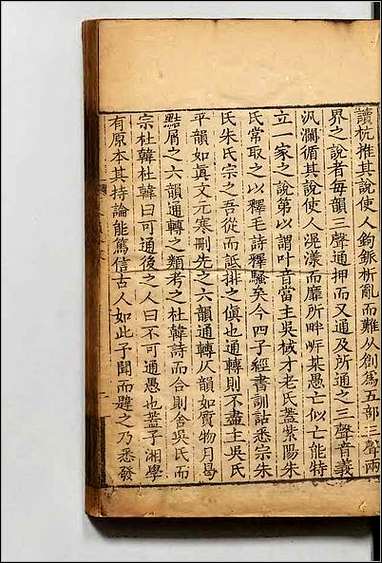 讀杭推其說使人鉤鈲析亂而難从創爲五部三聲兩
界之說者每韻三聲通押而又通及所通之三聲音義
汎瀾循其說使人滉漾而靡所畔㠯某愚亡似亡能特
立一家之說第以謂叶音當主吳棫才老氏蓋紫陽朱
氏常取之以釋毛詩釋騷矣今四子經書訓詁悉宗朱
氏朱氏宗之吾從而詆排之傎也通轉則不盡主吳氏
平韻如眞文元寒刪先之六韻通轉仄韻如質物月曷
黠屑之六韻通轉之類考之杜韓詩而合則舍吳氏而
宗杜韓杜韓曰可通後之人曰不可通愚也蓋子湘學
有原本其持論能篤信古人如此予聞而韙之乃悉發